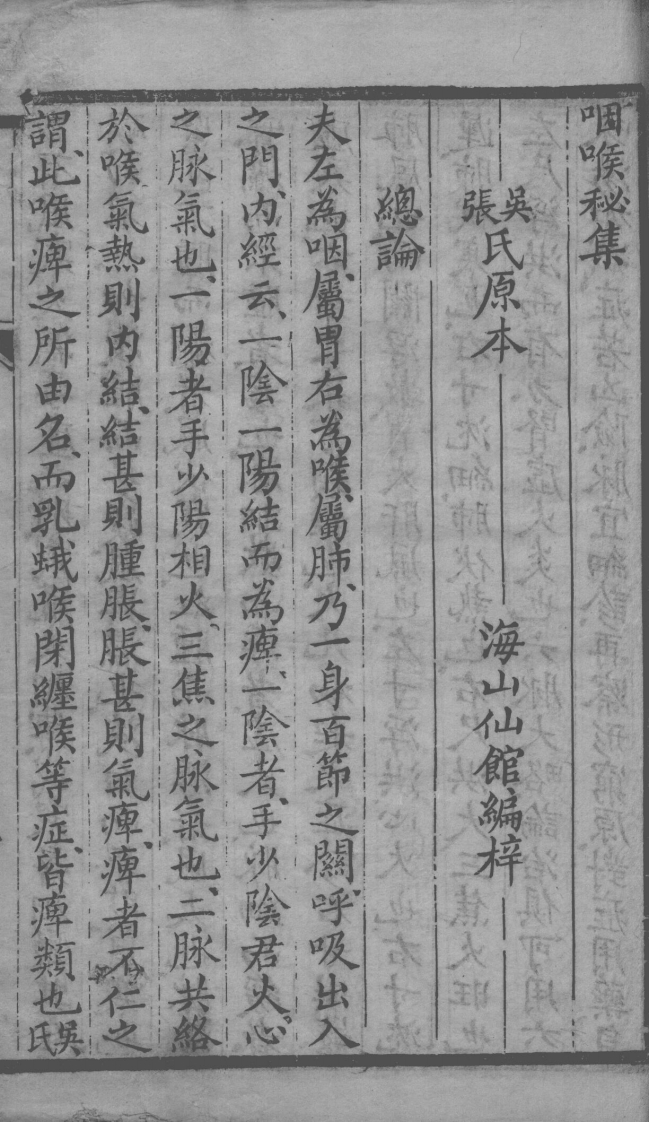 咽喉秘集
吳張氏原本　海山仙館編梓
總論
夫左為咽、屬胃右為喉、屬肺、乃一身百節之關、呼吸出入
之門、內經云、一陰一陽結而為痺、一陰者、手少陰君火、心
之脉氣也、一陽者手少陽相火、三焦之脉氣也、二脉共絡
於喉氣熱則內結、結甚則腫脹、脹甚則氣痺、痺者不仁之
謂、此喉痺之所由名、而乳蛾喉閉纏喉等症、皆痺類也吳氏